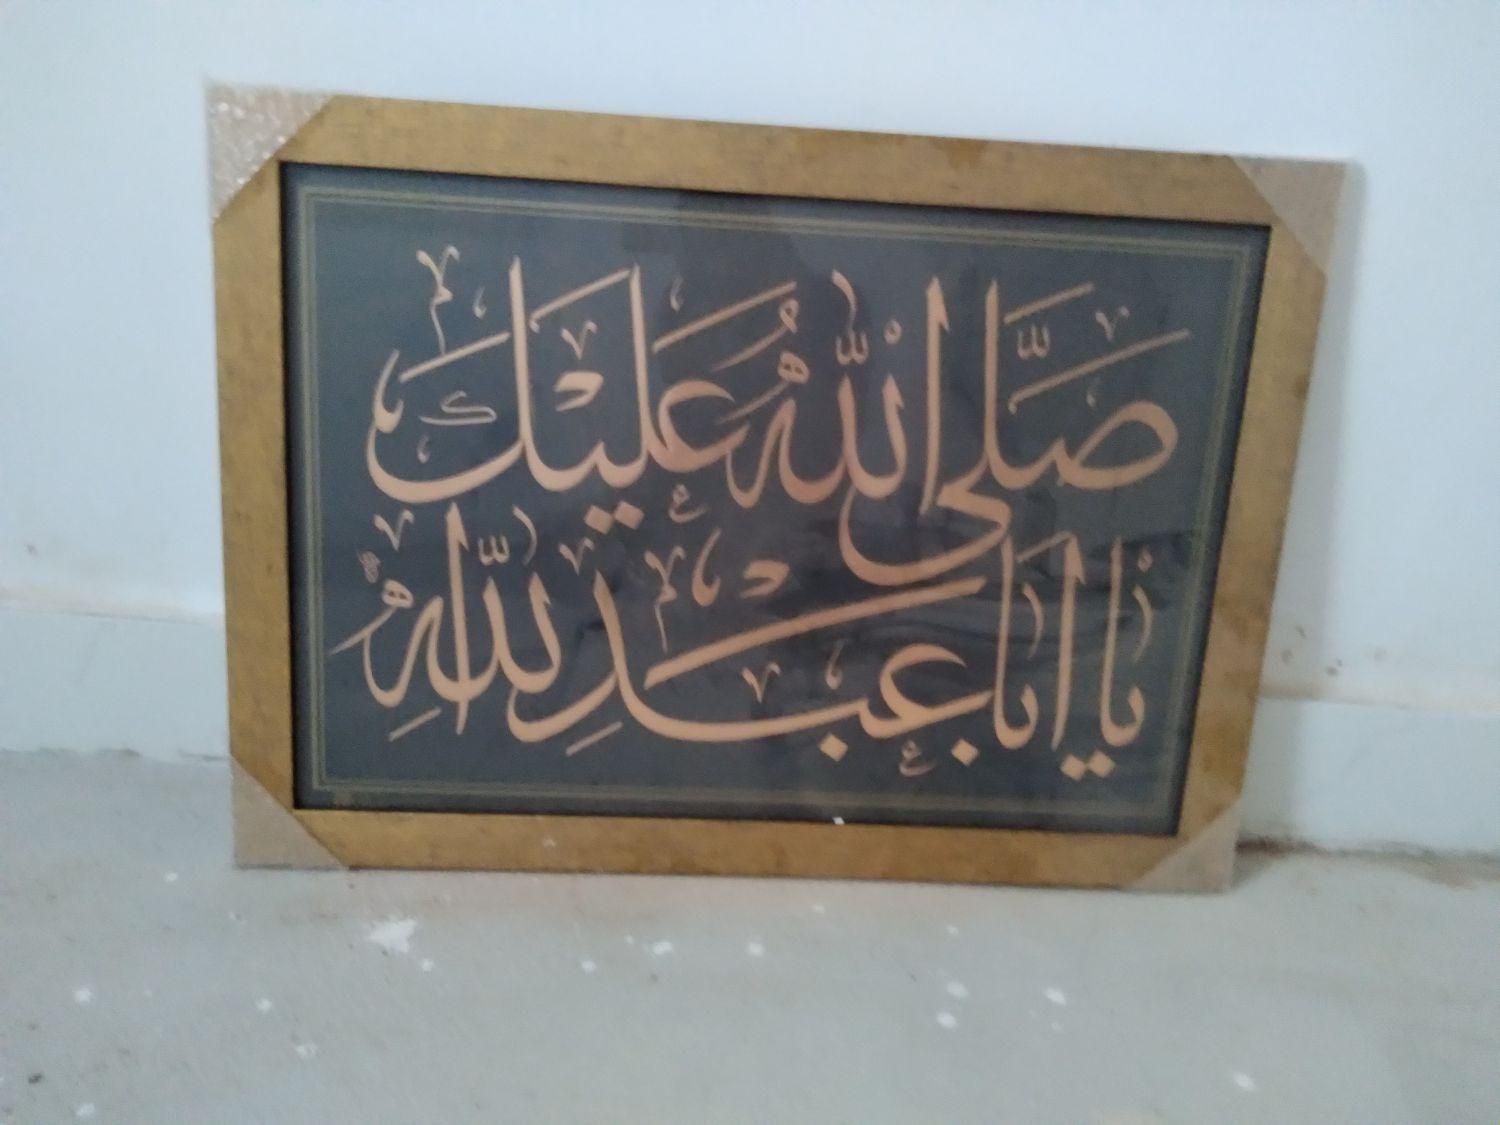 صَلَّى اللّٰهُ عَلَيْكَ
يَا اَبَا عَبْدِ اللّٰهِ